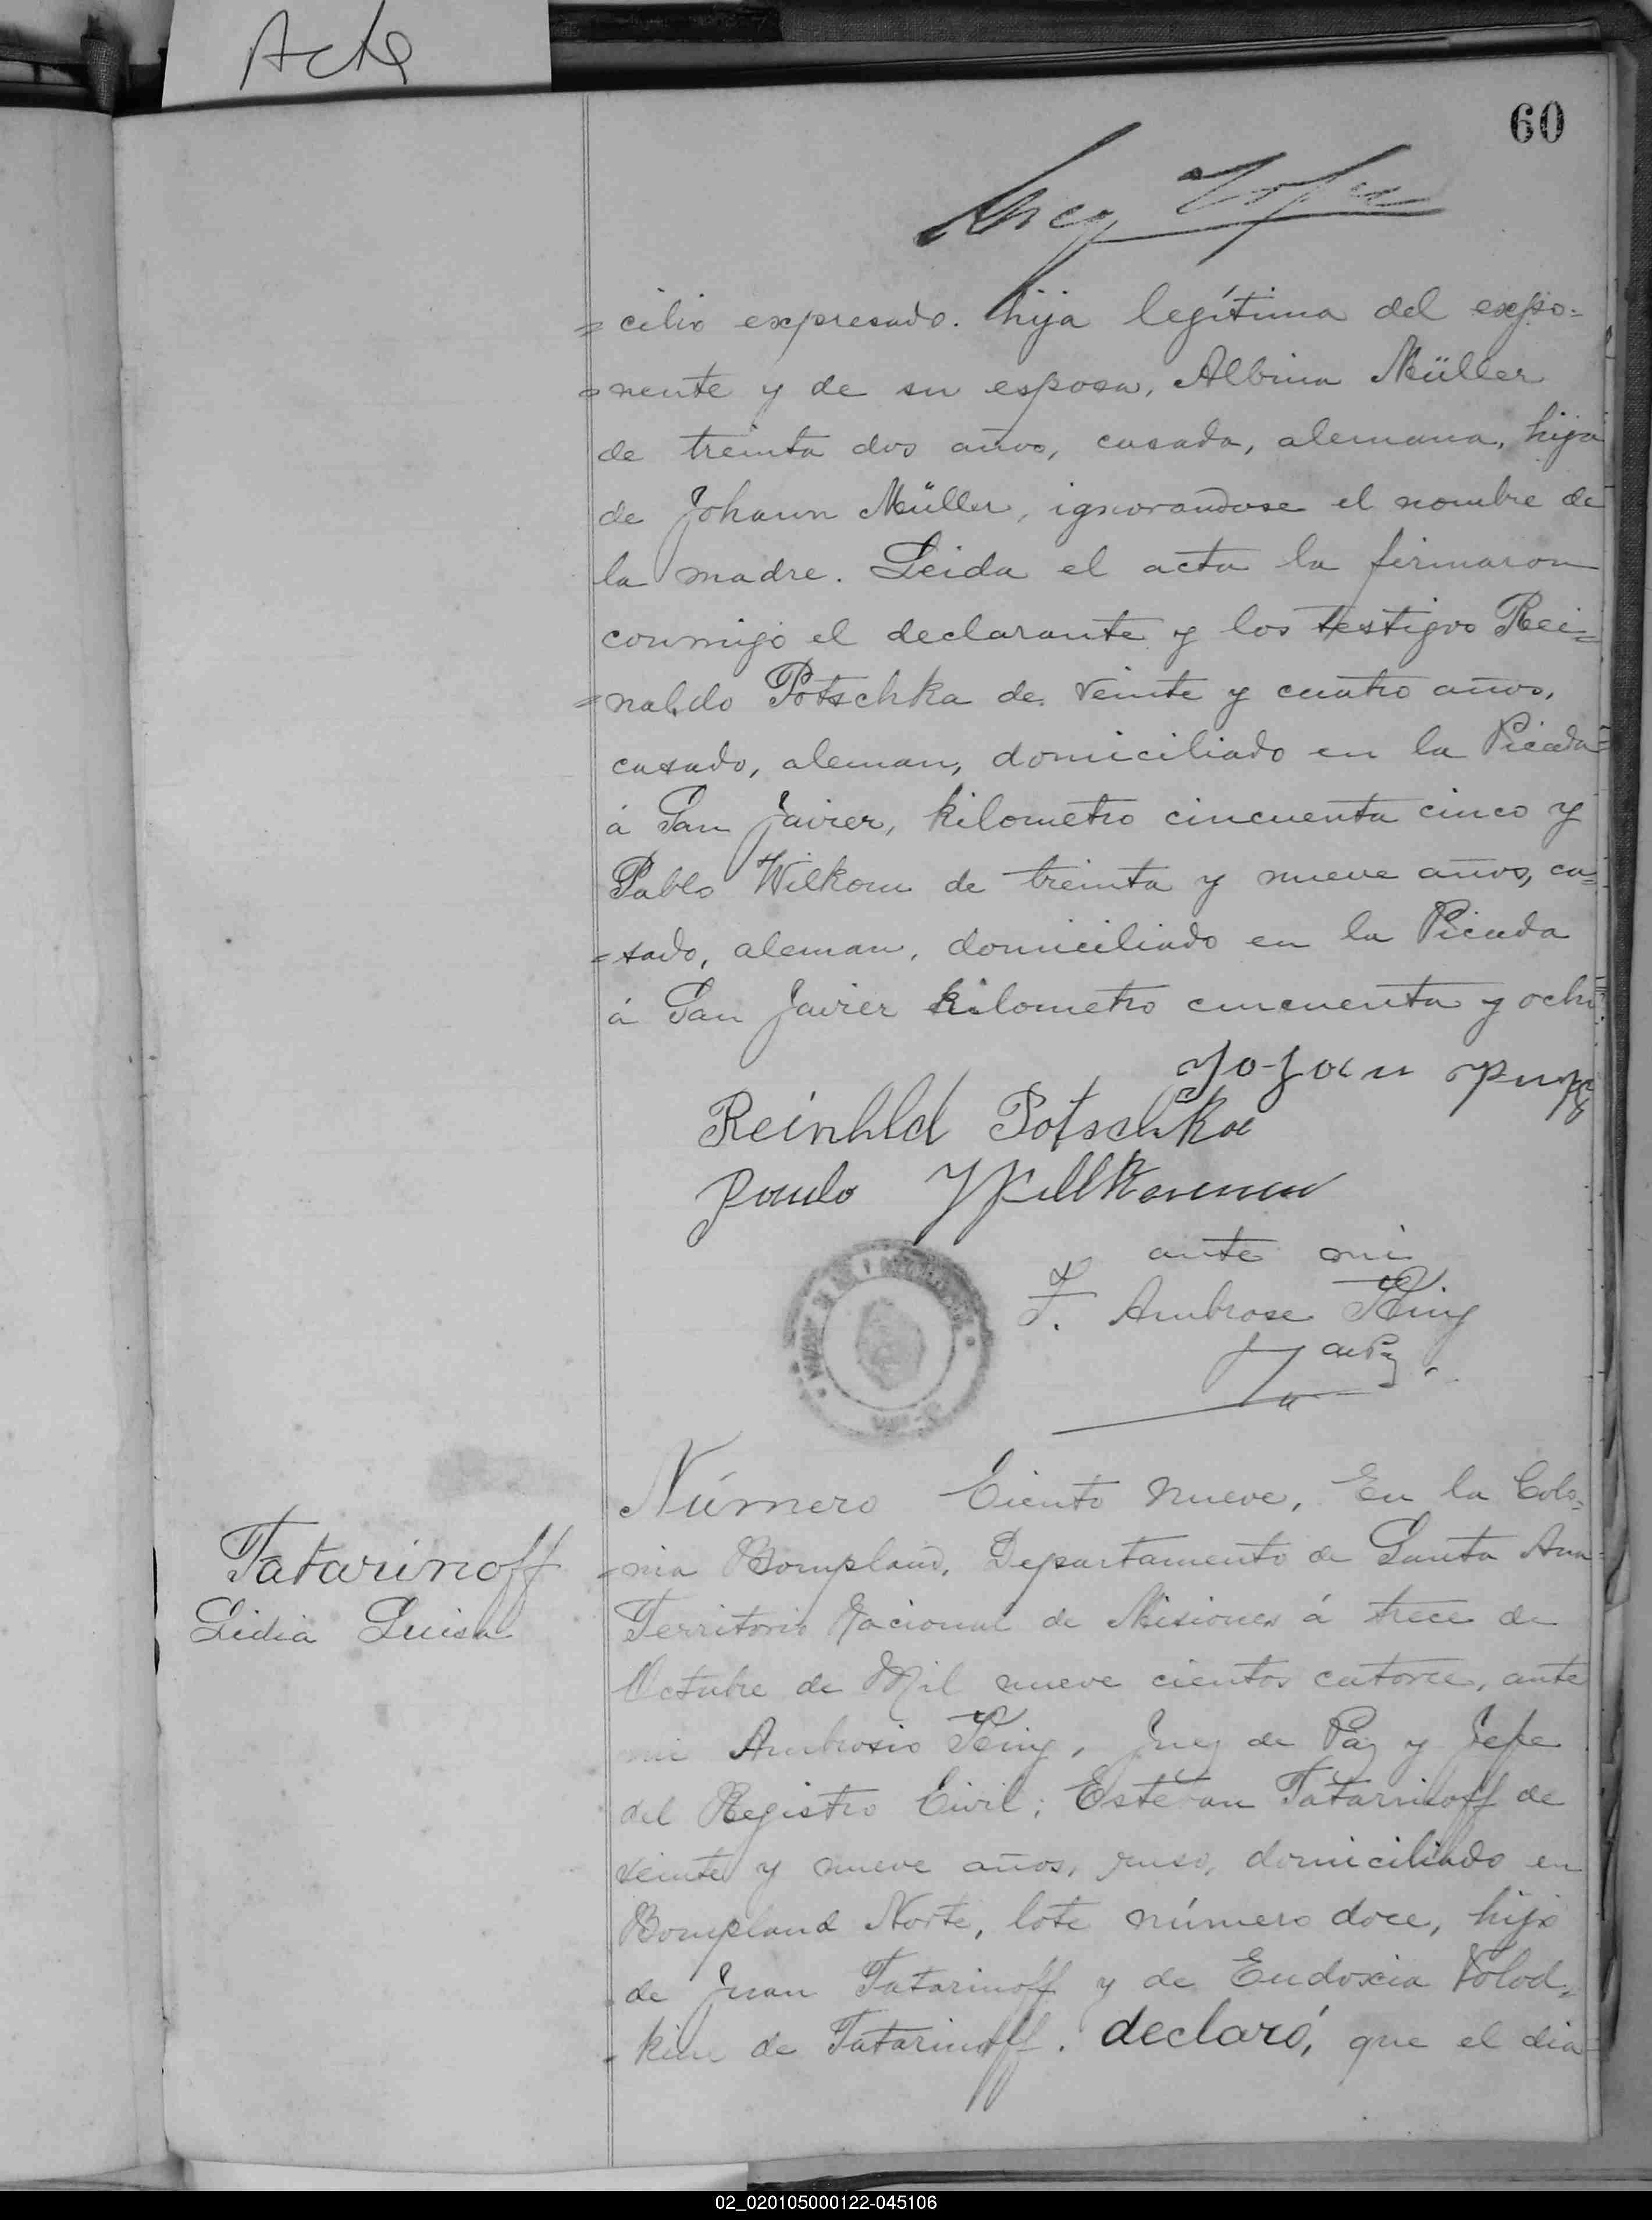 Acta
60
=cilio expresado. hija legítima del expo=
=nente y de su esposa, Albina Müller
de treinta dos años, casada, alemana, hija
de Johann Müller, ignorandose el nombre de
la madre. Leida el acta la firmaron
conmigo el declarante y los testigos Rei=
=naldo Potschka de veinte y cuatro años,
casado, aleman, domiciliado en la Picada
á San Javier, kilometro cincuenta cinco y
Pablo Wilkom de treinta y nueve años, ca=
=sado, aleman, domiciliado en la Picada
á San Javier kilometro cincuenta y ocho.
Reinhld Potschka
Paulo Willkommen
ante mi
F. Ambrose King
Número Ciento nueve, En la Colo=
=nia Bompland, Departamento de Santa Ana
Tatarinoff
Lidia Luisa
Territorio Nacional de Misiones á trece de
Octubre de Mil nueve cientos catorce, ante
mi Ambrosio King, Juez de Paz y Jefe
del Registro Civil; Estevan Tatarinoff de
veinte y nueve años, ruso, domiciliado en
Bompland Norte, lote número doce, hijo
de Juan Tatarinoff y de Eudoxia Volod=
=kin de Tatarinoff. declaró, que el dia
02_020105000122-045106